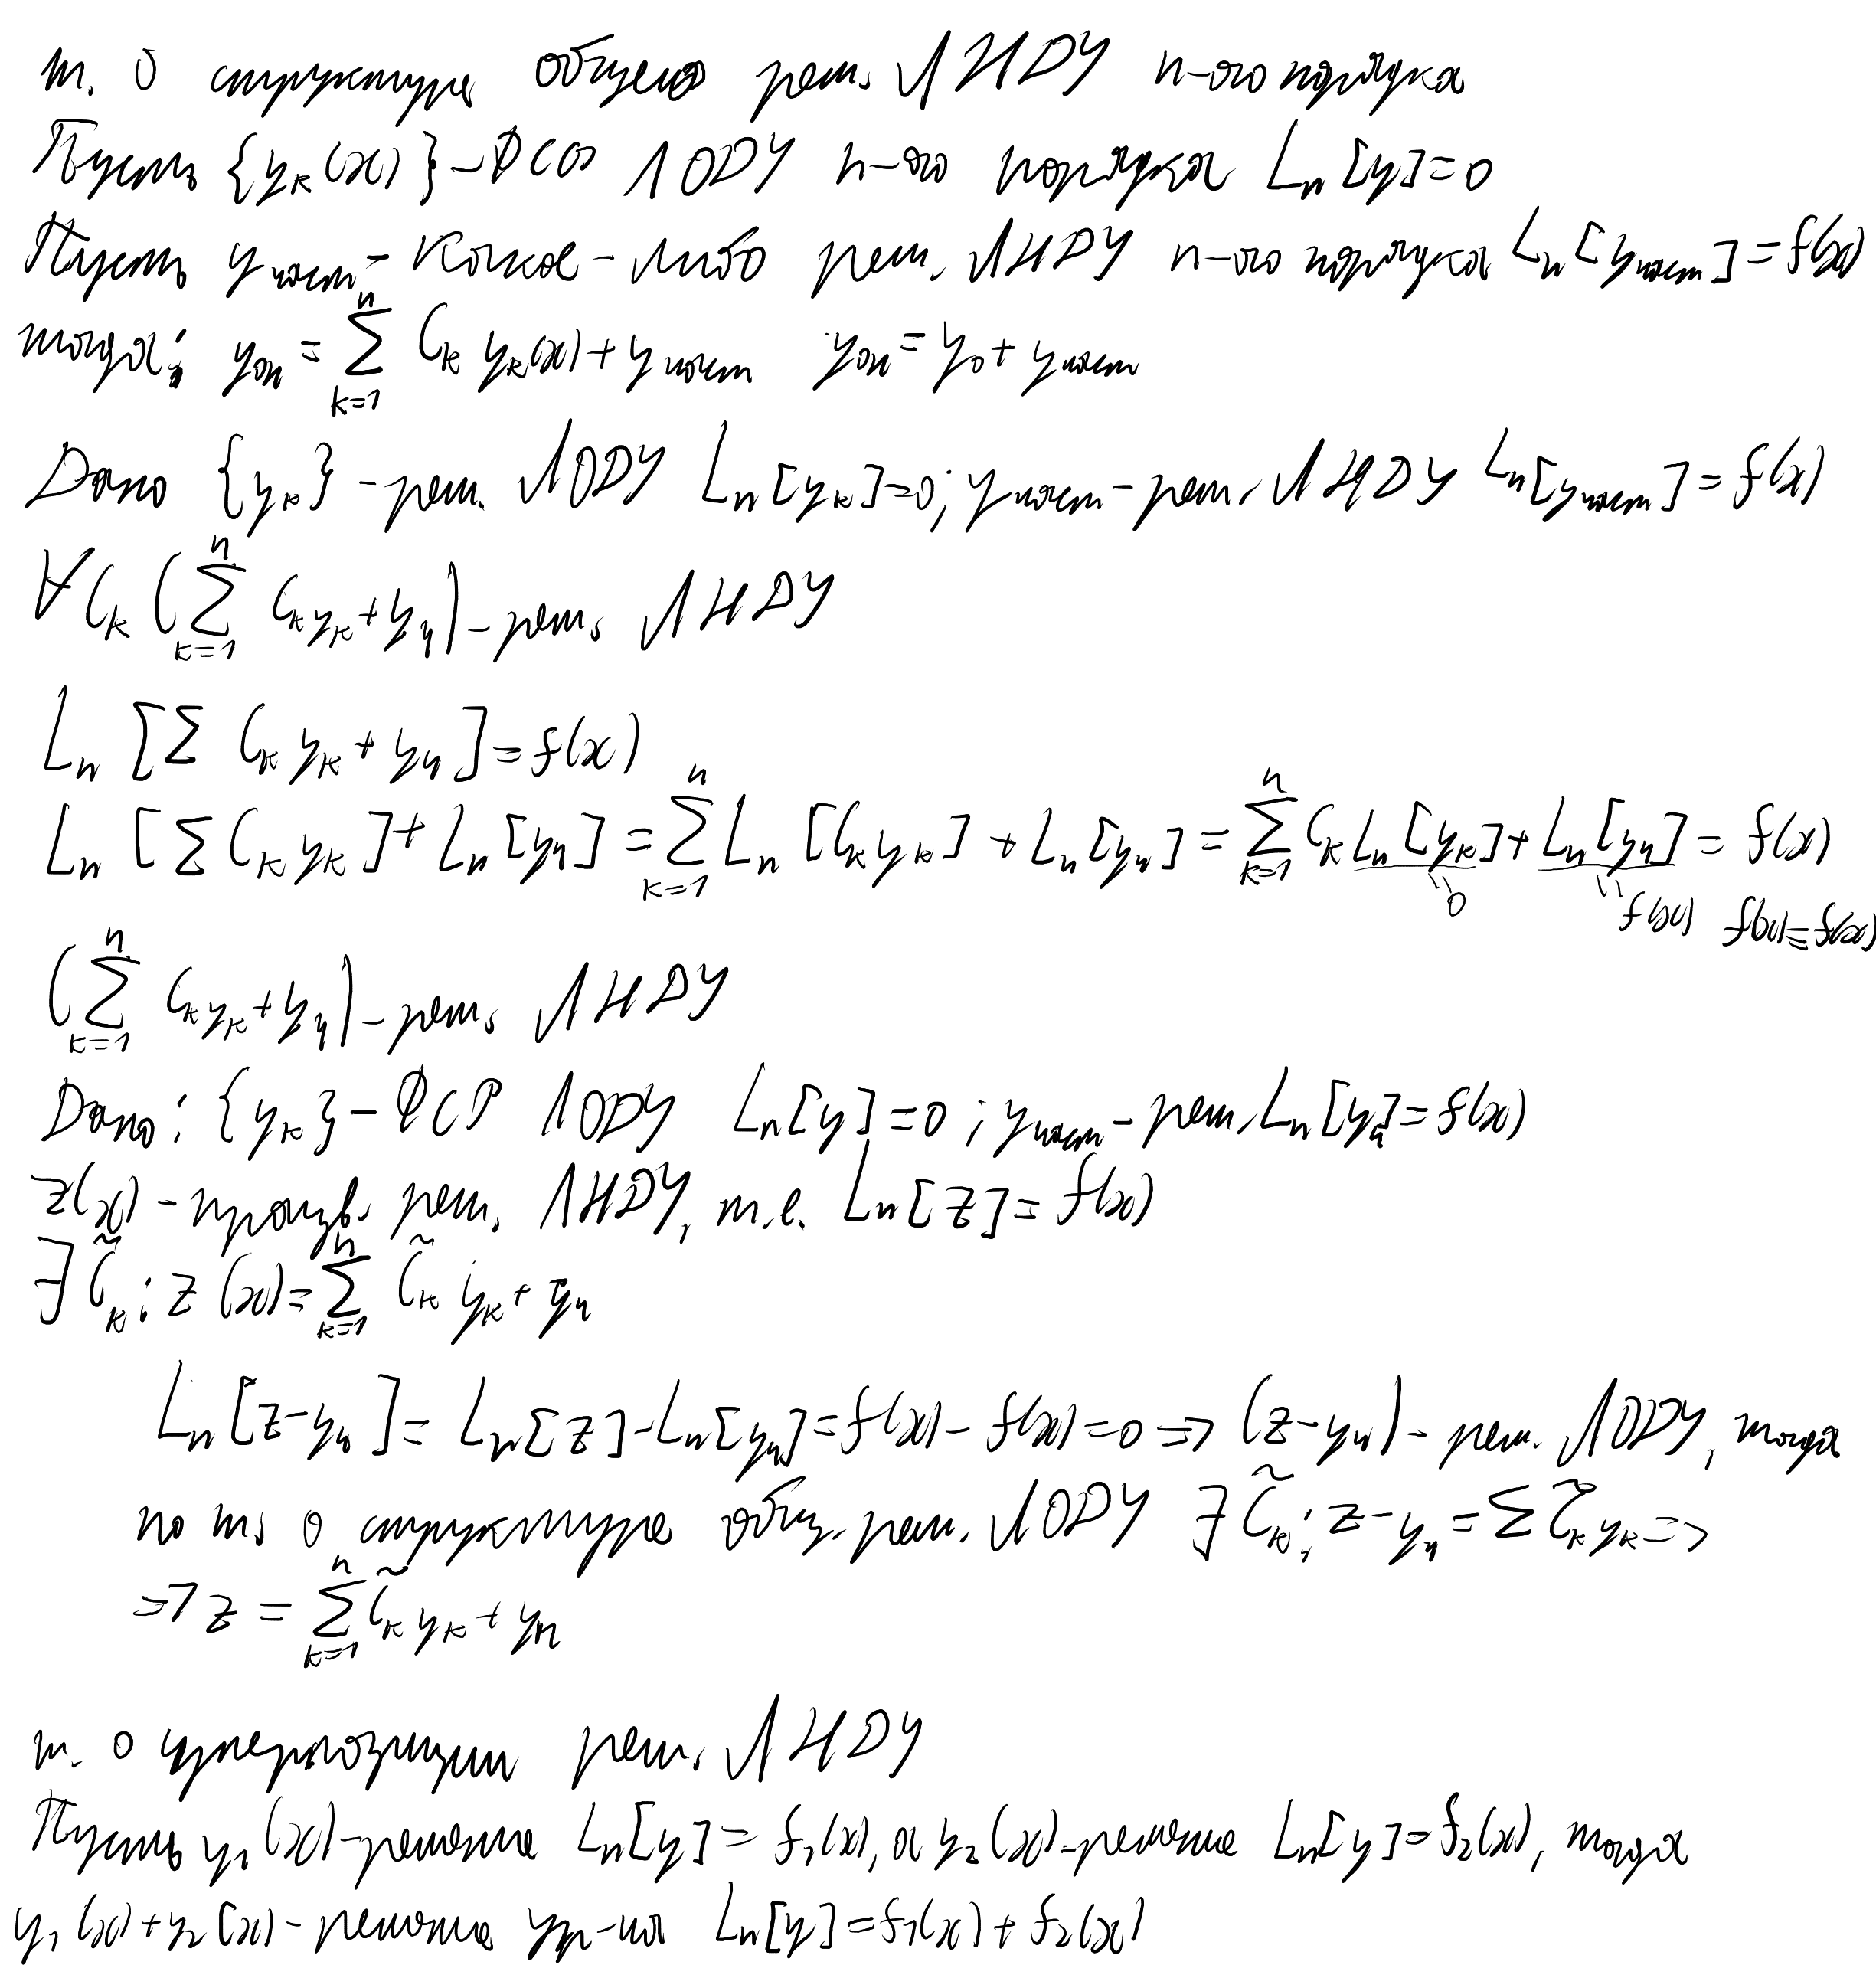 т. о структуре общего реш. ЛНДУ n-ого порядка
Пусть {yₖ(x)} - ФСР ЛОДУ n-ого порядка Lₙ[y]=0
Пусть yчаст - какое-либо реш. ЛНДУ n-ого порядка Lₙ[yчаст]=f(x)
тогда: yон = ∑ₖ₌₁ⁿ Cₖ yₖ(x) + yчаст yон = y₀ + yчаст
Дано {yₖ} - реш. ЛОДУ Lₙ[yₖ]=0; yчаст - реш. ЛНДУ Lₙ[yчаст]=f(x)
∀Cₖ (∑ₖ₌₁ⁿ Cₖyₖ+yч) - реш. ЛНДУ
Lₙ [∑ Cₖ yₖ + yч] = f(x)
Lₙ [∑ Cₖ yₖ] + Lₙ [yч] = ∑ₖ₌₁ⁿ Lₙ [Cₖyₖ] + Lₙ[yч] = ∑ₖ₌₁ⁿ Cₖ Lₙ[yₖ] + Lₙ[yч] = f(x)
0 f(x) f(x)≡f(x)
(∑ₖ₌₁ⁿ Cₖyₖ+yч) - реш. ЛНДУ
Дано: {yₖ} - ФСР ЛОДУ Lₙ[y]=0; yчаст - реш. Lₙ[yч]=f(x)
z(x) - произв. реш. ЛНДУ, т.е. Lₙ[z]=f(x)
∃ C̃ₖ: z(x)=∑ₖ₌₁ⁿ C̃ₖ yₖ + yч
Lₙ[z-yч] = Lₙ[z]-Lₙ[yч]=f(x)-f(x)=0 => (z-yч) - реш. ЛОДУ, тогда
по т. о структуре общ. реш. ЛОДУ ∃ C̃ₖ: z-yч = ∑ C̃ₖ yₖ =>
=> z = ∑ₖ₌₁ⁿ C̃ₖ yₖ + yч
т. о суперпозиции реш. ЛНДУ
Пусть y₁(x) - решение Lₙ[y] = f₁(x), а y₂(x) - решение Lₙ[y]=f₂(x), тогда
y₁(x)+y₂(x) - решение ур-ия Lₙ[y]=f₁(x)+f₂(x)